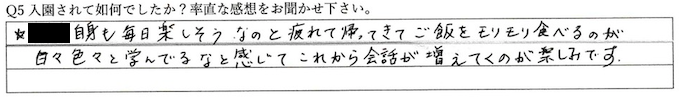 Q5 入園されて如何でしたか？率直な感想をお聞かせ下さい。
☆ 自身も毎日楽しそうなのと疲れて帰ってきてご飯をモリモリ食べるのが
日々色々と学んでるなと感じてこれから会話が増えてくのが楽しみです.